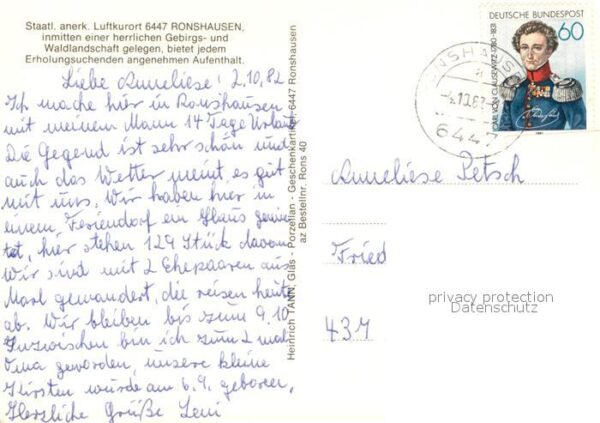 Staatl. anerk. Luftkurort 6447 RONSHAUSEN,
inmitten einer herrlichen Gebirgs- und
Waldlandschaft gelegen, bietet jedem
Erholungsuchenden angenehmen Aufenthalt.
Liebe Anneliese! 2.10.82
Ich mache hier in Ronshausen
mit meinem Mann 14 Tage Urlaub
Die Gegend ist sehr schön und
auch das Wetter meint es gut
mit uns. Wir haben hier in
einem Feriendorf ein Haus gemie
tet, hier stehen 129 Stück davon
Wir sind mit 2 Ehepaaren aus
Marl gewandert, die reisen heute
ab. Wir bleiben bis zum 9.10
Inzwischen bin ich zum 2 mal
Oma geworden, unsere kleine
Kirsten wurde am 6.9. geboren,
Herzliche Grüße Leni
Heinrich TANN, Glas - Porzellan - Geschenkartikel 6447 Ronshausen
az Bestellnr. Rons 40
DEUTSCHE BUNDESPOST
60
CARL VON CLAUSEWITZ 1780-1831
RONSHAUSEN
a
-4.10.82
6447
Anneliese Petsch
Fried
437
privacy protection
Datenschutz